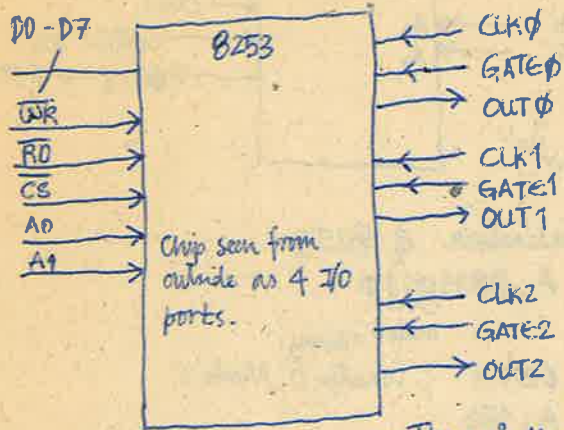 D0-D7
8253
W̅R̅
R̅D̅
C̅S̅
A0
A1
Chip seen from
outside as 4 I/O
ports.
CLKØ
GATEØ
OUTØ
CLK1
GATE1
OUT1
CLK2
GATE2
OUT2